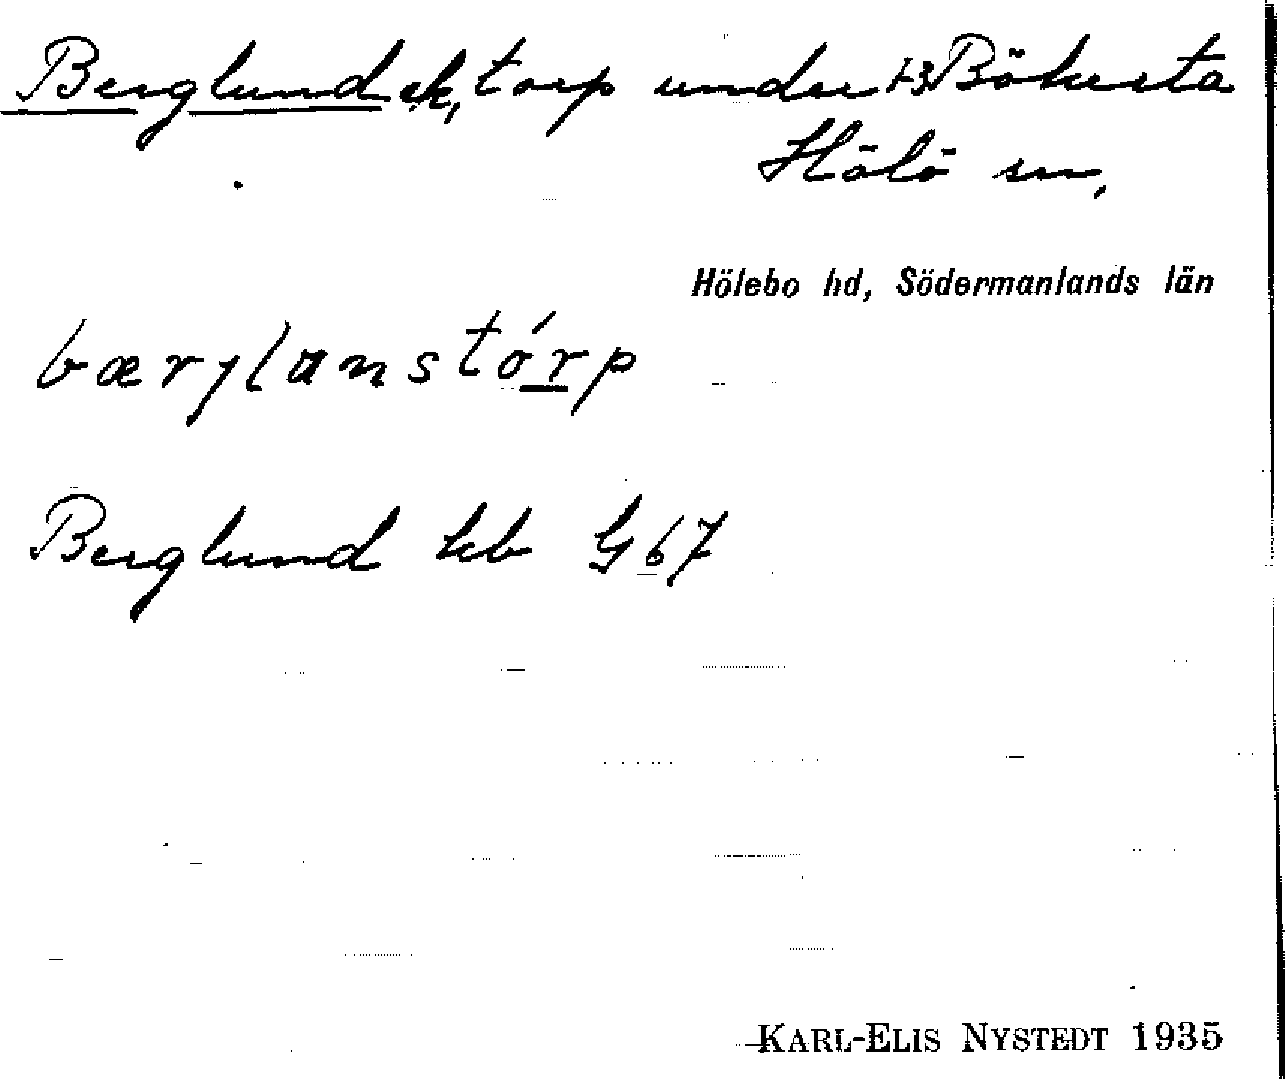 Berglund ek, torp under 1-3 Bökesta
Hölö sn,
Hölebo hd, Södermanlands län
bærylanstórp
Berglund kb G 67
KARL-ELIS NYSTEDT 1935